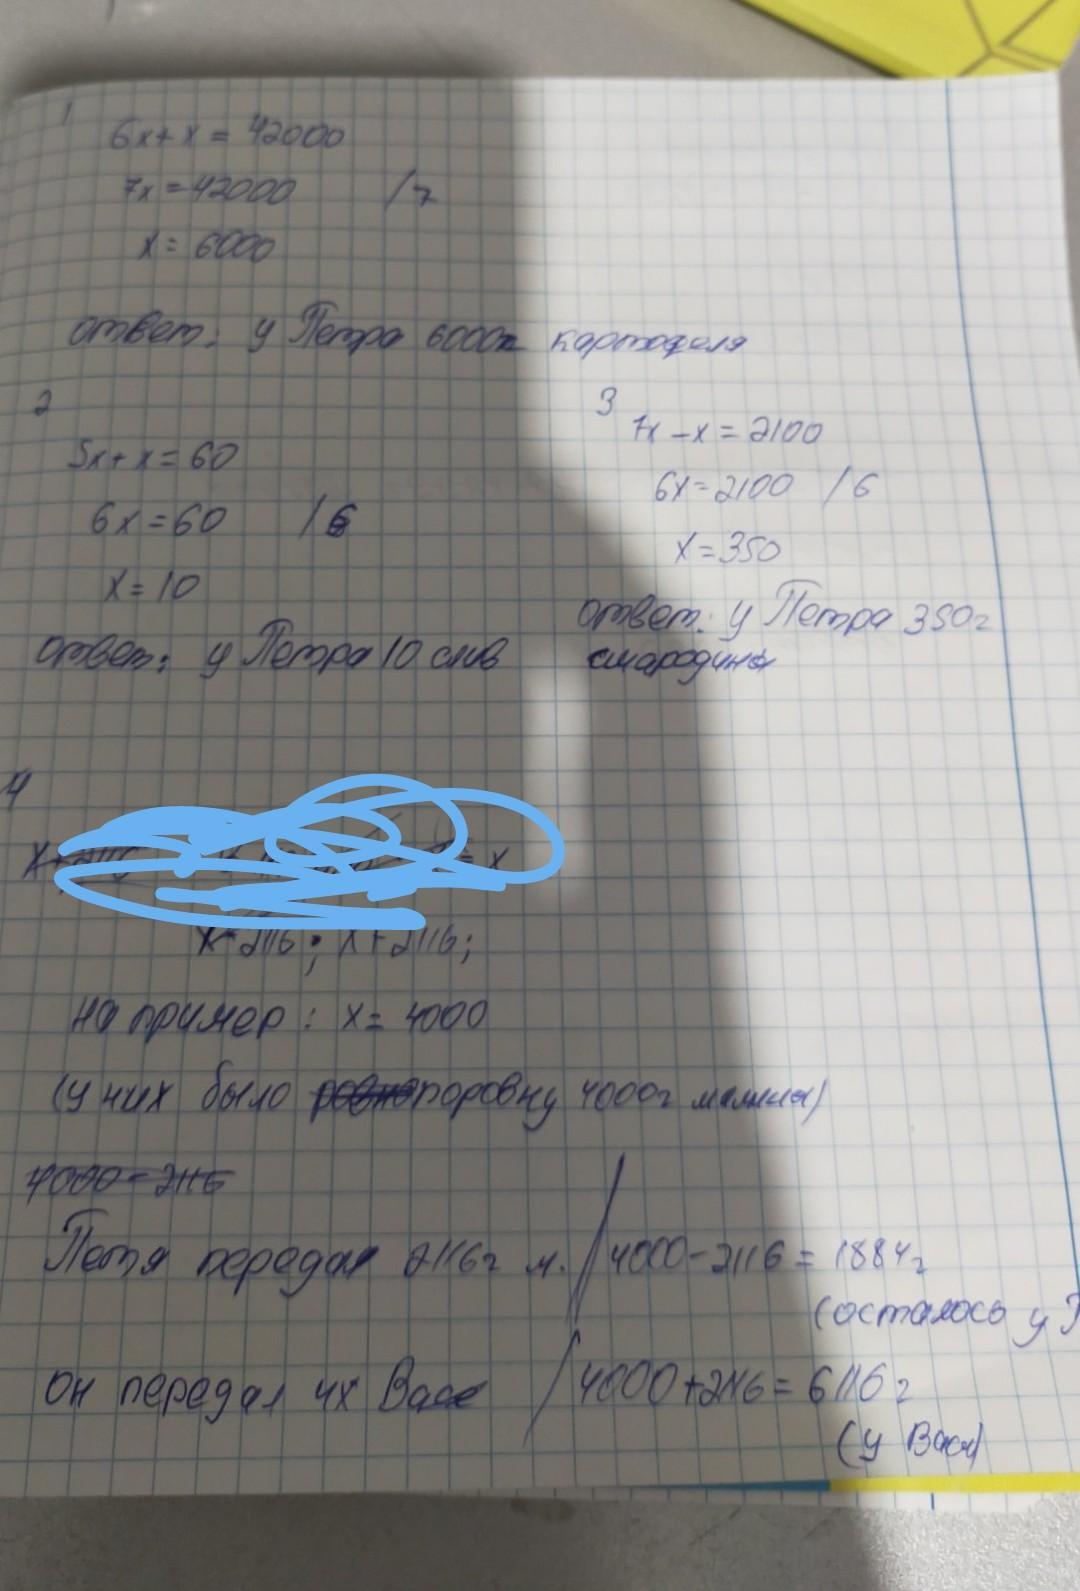 1
6x + x = 42000
7x = 42000 /7
x = 6000
ответ: у Петра 6000г картофеля
2
5x + x = 60
6x = 60 /6
x = 10
ответ: у Петра 10 слив
3
7x - x = 2100
6x = 2100 /6
x = 350
ответ: у Петра 350г
смародины
4
x-2116; x+2116;
например: x = 4000
(у них было поровну 4000г малины)
4000 - 2116
Петя передал 2116г м. / 4000-2116 = 1884г
(осталось у
он передал их Васе / 4000+2116 = 6116г
(у Васи)